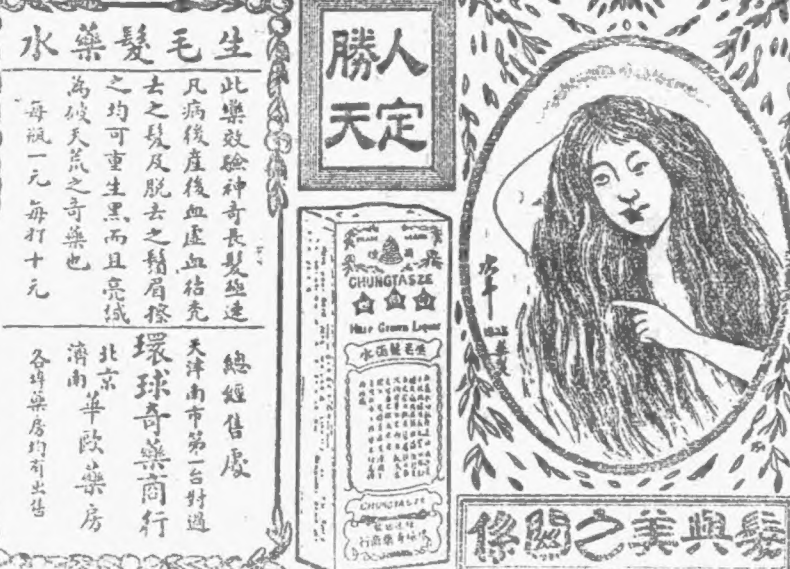 生毛髮藥水
此藥效驗神奇長髮極速
凡病後產後血虛血枯禿
去之髮及脫去之鬚眉擦
之均可重生黑而且亮诚
為破天荒之奇藥也
每瓶一元每打十元
總經售處
天津南市第一台對過
環球奇藥商行
北京
濟南
華歐藥房
各埠藥房均有出售
人定
勝天
TRADE MARK
CHUNGTASZE
Hair Grown Liquor
水藥髮毛生
CHUNGTASZE
行商藥奇球環
髮與美之關係